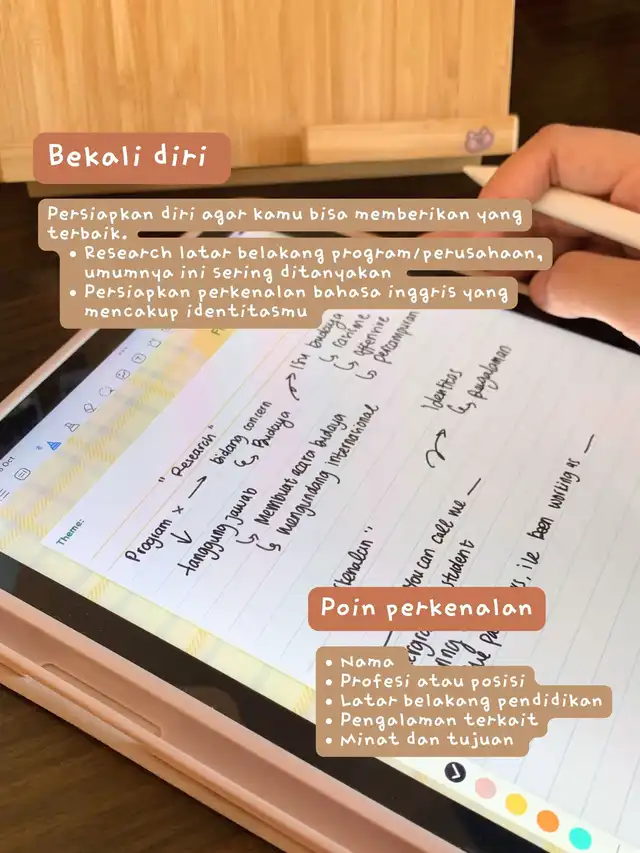 Bekali diri
Persiapkan diri agar kamu bisa memberikan yang
terbaik.
• Research latar belakang program/perusahaan,
umumnya ini sering ditanyakan
• Persiapkan perkenalan bahasa inggris yang
mencakup identitasmu
Theme:
"Research"
Program x → bidang concern
↳ Budaya → Isu budaya
↳ racisme
↳ offensive
↳ percampuran
↓
tanggung jawab
↳ Membuat acara budaya
↳ mengundang international
Identitas
↳ pengalaman
You can call me —
student
i've been working as —
Poin perkenalan
• Nama
• Profesi atau posisi
• Latar belakang pendidikan
• Pengalaman terkait
• Minat dan tujuan